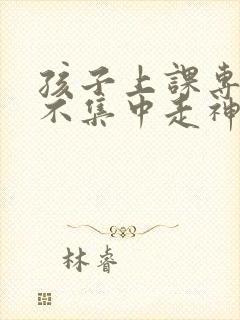 孩子上課專
不集中走神
林睿